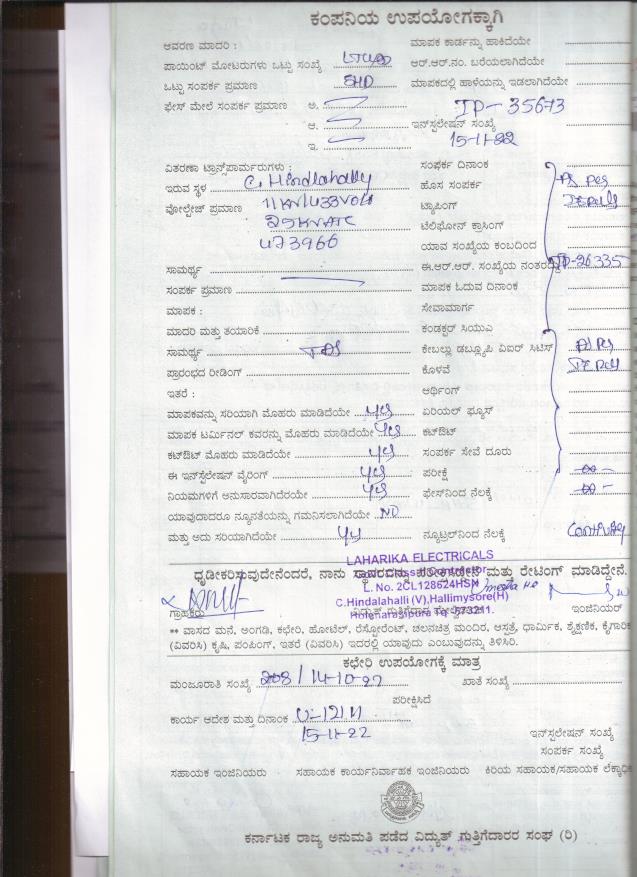 ಕಂಪನಿಯ ಉಪಯೋಗಕ್ಕಾಗಿ
ಆವರಣ ಮಾದರಿ :
ಮಾಪಕ ಕಾರ್ಡನ್ನು ಹಾಕಿದೆಯೇ
ಪಾಯಿಂಟ್ ಮೋಟರುಗಳು ಒಟ್ಟು ಸಂಖ್ಯೆ
ಆರ್.ಆರ್.ನಂ. ಬರೆಯಲಾಗಿದೆಯೇ
ಒಟ್ಟು ಸಂಪರ್ಕ ಪ್ರಮಾಣ 5HP
ಮಾಪಕದಲ್ಲಿ ಹಾಳೆಯನ್ನು ಇಡಲಾಗಿದೆಯೇ
ಫೇಸ್ ಮೇಲೆ ಸಂಪರ್ಕ ಪ್ರಮಾಣ ಅ.
IP-35673
ಆ.
ಇನ್‌ಸ್ಟಲೇಷನ್ ಸಂಖ್ಯೆ
ಇ.
15-11-22
ವಿತರಣಾ ಟ್ರಾನ್ಸ್‌ಫಾರ್ಮರುಗಳು :
ಸಂಪರ್ಕ ದಿನಾಂಕ
ಇರುವ ಸ್ಥಳ C. Hindlahally
ಹೊಸ ಸಂಪರ್ಕ AS Per
ವೋಲ್ಟೇಜ್ ಪ್ರಮಾಣ 11KV/433Volt
ಟ್ಯಾಪಿಂಗ್
25KVATC
ಟೆಲಿಫೋನ್ ಕ್ರಾಸಿಂಗ್
473966
ಯಾವ ಸಂಖ್ಯೆಯ ಕಂಬದಿಂದ
ಸಾಮರ್ಥ್ಯ
ಈ.ಆರ್.ಆರ್. ಸಂಖ್ಯೆಯ ನಂತರದ್ದು IP-26335
ಸಂಪರ್ಕ ಪ್ರಮಾಣ
ಮಾಪಕ ಓದುವ ದಿನಾಂಕ
ಮಾಪಕ :
ಸೇವಾಮಾರ್ಗ
ಮಾದರಿ ಮತ್ತು ತಯಾರಿಕೆ
ಕಂಡಕ್ಟರ್ ಸಿಯುಎ
ಸಾಮರ್ಥ್ಯ
ಕೇಬಲ್ಲು ಡಬ್ಲ್ಯೂಪಿ ವಿಐರ್ ಸಿಟಿಸ್
ಪ್ರಾರಂಭದ ರೀಡಿಂಗ್
ಕೊಳವೆ
ಇತರೆ :
ಆರ್ಥಿಂಗ್
ಮಾಪಕವನ್ನು ಸರಿಯಾಗಿ ಮೊಹರು ಮಾಡಿದೆಯೇ yes
ಏರಿಯಲ್ ಫ್ಯೂಸ್
ಮಾಪಕ ಟರ್ಮಿನಲ್ ಕವರನ್ನು ಮೊಹರು ಮಾಡಿದೆಯೇ yes
ಕಟ್‌ಔಟ್
ಕಟ್‌ಔಟ್ ಮೊಹರು ಮಾಡಿದೆಯೇ yes
ಸಂಪರ್ಕ ಸೇವೆ ದೂರು
ಈ ಇನ್‌ಸ್ಟಲೇಷನ್ ವೈರಿಂಗ್ yes
ಪರೀಕ್ಷೆ
ನಿಯಮಗಳಿಗೆ ಅನುಸಾರವಾಗಿದೆರೆಯೇ yes
ಫೇಸ್‌ನಿಂದ ನೆಲಕ್ಕೆ
ಯಾವುದಾದರೂ ನ್ಯೂನತೆಯನ್ನು ಗಮನಿಸಲಾಗಿದೆಯೇ NO
ಮತ್ತು ಅದು ಸರಿಯಾಗಿದೆಯೇ yes
ನ್ಯೂಟ್ರಲ್‌ನಿಂದ ನೆಲಕ್ಕೆ
LAHARIKA ELECTRICALS
ಧೃಡೀಕರಿಸುವುದೇನೆಂದರೆ, ನಾನು ಸ್ಥಾವರವನ್ನು ಪರೀಕ್ಷಿಸಿದ್ದೇನೆ ಮತ್ತು ರೇಟಿಂಗ್ ಮಾಡಿದ್ದೇನೆ.
L. No. 2CL128624HSN
C.Hindalahalli (V),Hallimysore(H)
Holenarasipura Tq. 573211.
ಗ್ರಾಹಕರು
ಇಂಜಿನಿಯರ್
** ವಾಸದ ಮನೆ, ಅಂಗಡಿ, ಕಛೇರಿ, ಹೋಟೆಲ್, ರೆಸ್ಟೋರೆಂಟ್, ಚಲನಚಿತ್ರ ಮಂದಿರ, ಆಸ್ಪತ್ರೆ, ಧಾರ್ಮಿಕ, ಶೈಕ್ಷಣಿಕ, ಕೈಗಾರಿಕ
(ವಿವರಿಸಿ) ಕೃಷಿ, ಪಂಪಿಂಗ್, ಇತರೆ (ವಿವರಿಸಿ) ಇದರಲ್ಲಿ ಯಾವುದು ಎಂಬುವುದನ್ನು ತಿಳಿಸಿರಿ.
ಕಛೇರಿ ಉಪಯೋಗಕ್ಕೆ ಮಾತ್ರ
ಮಂಜೂರಾತಿ ಸಂಖ್ಯೆ 208/14-10-22
ಖಾತೆ ಸಂಖ್ಯೆ
ಪರೀಕ್ಷಿಸಿದೆ
ಕಾರ್ಯ ಆದೇಶ ಮತ್ತು ದಿನಾಂಕ
15-11-22
ಇನ್‌ಸ್ಟಲೇಷನ್ ಸಂಖ್ಯೆ
ಸಂಪರ್ಕ ಸಂಖ್ಯೆ
ಸಹಾಯಕ ಇಂಜಿನಿಯರು
ಸಹಾಯಕ ಕಾರ್ಯನಿರ್ವಾಹಕ ಇಂಜಿನಿಯರು
ಕಿರಿಯ ಸಹಾಯಕ/ಸಹಾಯಕ ಲೆಕ್ಕಾಧಿ
ಕರ್ನಾಟಕ ರಾಜ್ಯ ಅನುಮತಿ ಪಡೆದ ವಿದ್ಯುತ್ ಗುತ್ತಿಗೆದಾರರ ಸಂಘ (ರಿ)